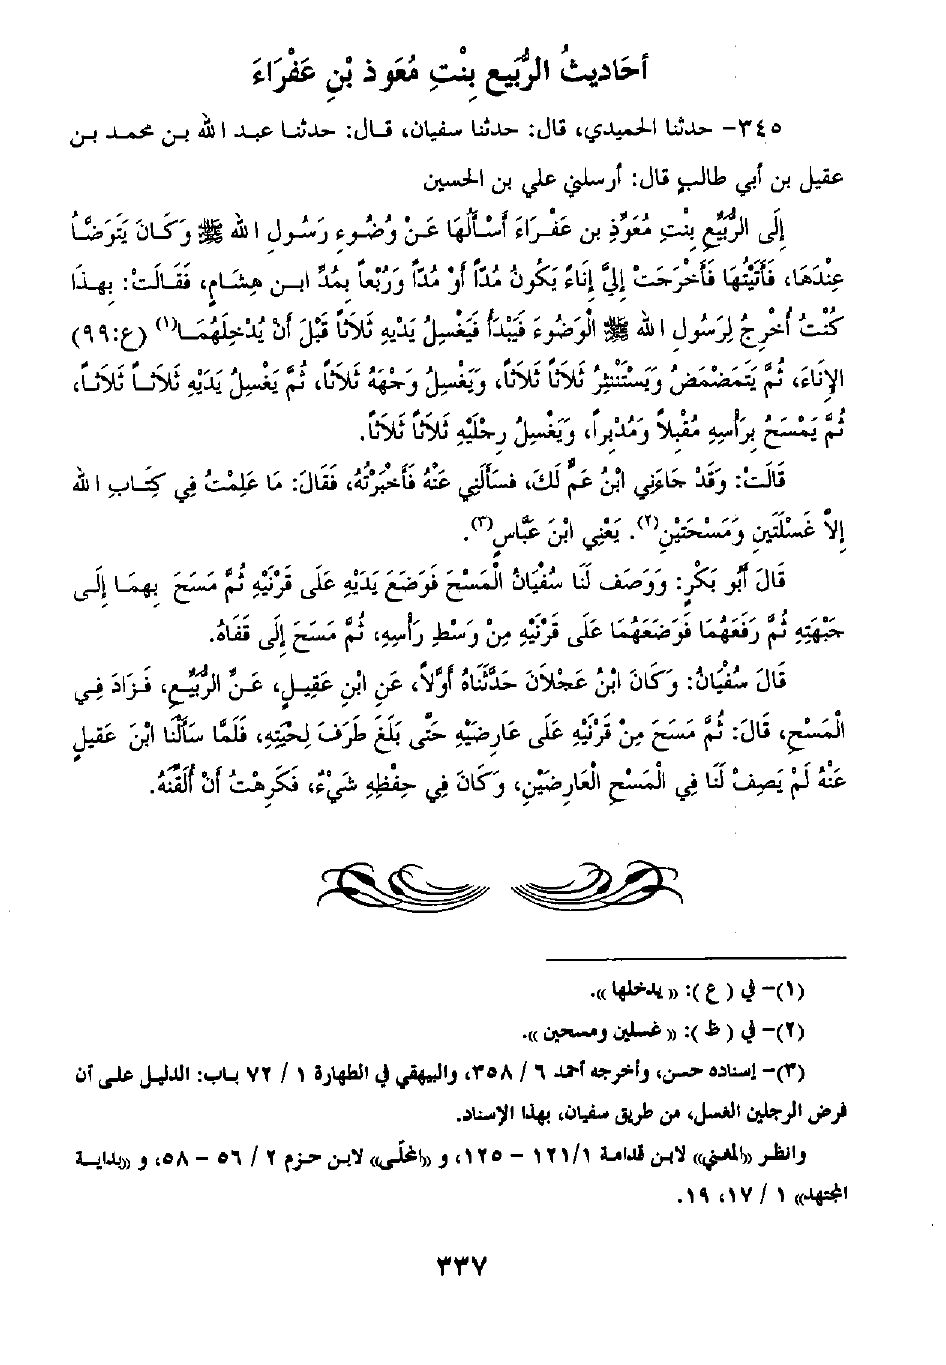 أحَاديثُ الرُّبَيع بِنْتِ مُعَوذ بْنِ عَفْرَاءَ
٣٤٥- حدثنا الحميدي، قال: حدثنا سفيان، قـال: حدثنـا عبـد الله بـن محمـد بـن
عقيل بن أبي طالب قال: أرسلني علي بن الحسين
إلَى الرُّبَيِّعِ بِنْتِ مُعَوِّذِ بن عَفْـرَاءَ أَسْـأَلُهَا عَـنْ وُضُـوءِ رَسُـولِ الله ﷺ وَكَـانَ يَتَوَضَّـأُ
عِنْدَهَا، فَأَتَيْتُهَا فَأَخْرَجَتْ إِلَيَّ إِنَاءً يَكُونُ مُدّاً أَوْ مُدّاً وَرُبْعاً بِمُدِّ ابـنِ هِشَـامٍ، فَقَـالَتْ: بِهـذَا
كُنْتُ أُخْرِجُ لِرَسُولِ الله ﷺ الْوَضُوءَ فَيَبْدَأُ فَيَغْسِلُ يَدَيْهِ ثَلاَثاً قَبْلَ أَنْ يُدْخِلَهُمَـا(١) (ع:٩٩)
الإِنَاءَ، ثُمَّ يَتَمَضْمَضُ وَيَسْتَنْثِرُ ثَلاَثاً ثَلاَثاً، وَيَغْسِلُ وَجْهَهُ ثَلاَثاً، ثُمَّ يَغْسِلُ يَدَيْهِ ثَلاَثـاً ثَلاَثـاً،
ثُمَّ يَمْسَحُ بِرَأْسِهِ مُقْبِلاً وَمُدْبِراً، وَيَغْسِلُ رِجْلَيْهِ ثَلاَثاً ثَلاَثاً.
قَالَتْ: وَقَدْ جَاءَنِي ابْنُ عَمٍّ لَكَ، فَسَأَلَنِي عَنْهُ فَأَخْبَرْتُهُ، فَقَالَ: مَا عَلِمْتُ فِي كِتَـابِ الله
إِلاَّ غَسْلَتَيْنِ وَمَسْحَتَيْنِ(٢). يَعْنِي ابْنَ عَبَّاسٍ(٣).
قَالَ أَبُو بَكْرٍ: وَوَصَفَ لَنَا سُفْيَانُ الْمَسْحَ فَوَضَعَ يَدَيْهِ عَلَى قَرْنَيْهِ ثُمَّ مَسَحَ بِهِمَـا إِلَـى
جَبْهَتِهِ ثُمَّ رَفَعَهُمَا فَوَضَعَهُمَا عَلَى قَرْنَيْهِ مِنْ وَسْطِ رَأْسِهِ، ثُمَّ مَسَحَ إِلَى قَفَاهُ.
قَالَ سُفْيَانُ: وَكَانَ ابْنُ عَجْلاَنَ حَدَّثَنَاهُ أَوَّلاً، عَنِ ابْنِ عَقِيـلٍ، عَـنِ الرُّبَيِّـعِ، فَـزَادَ فِـي
الْمَسْحِ، قَالَ: ثُمَّ مَسَحَ مِنْ قَرْنَيْهِ عَلَى عَارِضَيْهِ حَتَّى بَلَغَ طَرَفَ لِحْيَتِهِ، فَلَمَّا سَأَلْنَا ابْنَ عَقِيلٍ
عَنْهُ لَمْ يَصِفْ لَنَا فِي الْمَسْحِ الْعَارِضَيْنِ، وَكَانَ فِي حِفْظِهِ شَيْءٌ، فَكَرِهْتُ أَنْ أُلَقِّنَهُ.
(١)- في ( ع ): « يدخلها ».
(٢)- في ( ظ ): « غسلين ومسحين ».
(٣)- إسناده حسن، وأخرجه أحمد ٦ / ٣٥٨، والبيهقي في الطهارة ١ / ٧٢ بـاب: الدليل علـى أن
فرض الرجلين الغسل، من طريق سفيان، بهذا الإسناد.
وانظـر «المغني» لابـن قدامة ١٢١/١ – ١٢٥، و «المحلّى» لابـن حـزم ٢ / ٥٦ – ٥٨، و «بدايـة
المجتهد» ١ / ١٧، ١٩.
٣٣٧